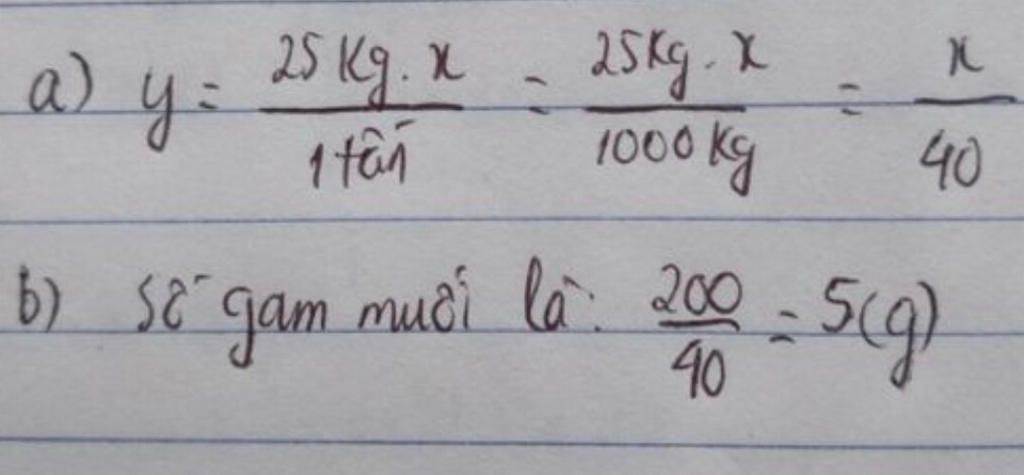 a) y = 25 Kg . x / 1 tấn = 25 Kg . x / 1000 Kg = x / 40
b) Số gam muối là: 200 / 40 = 5 (g)